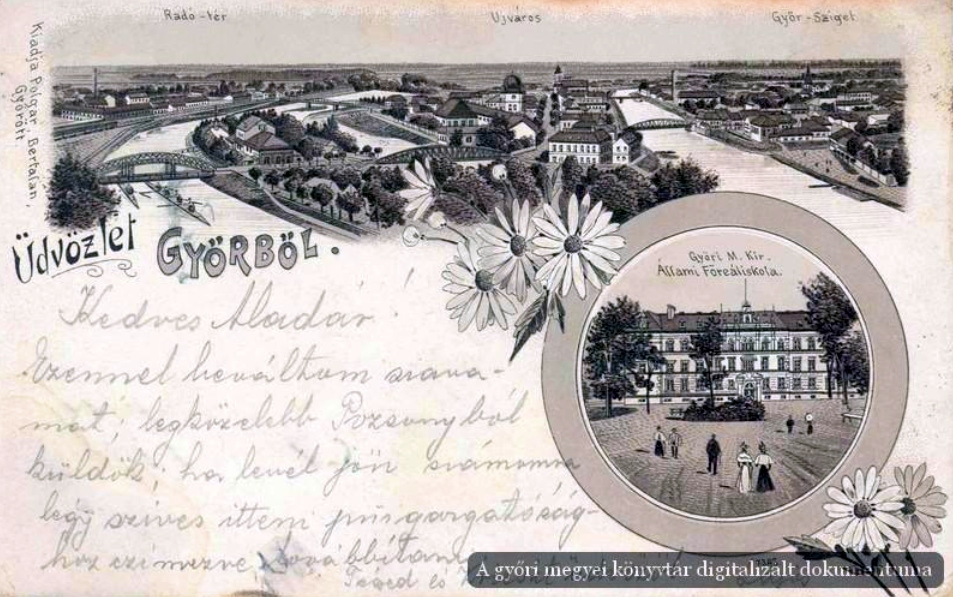 Radó-tér
Ujváros
Győr-Sziget
Kiadja Polgár Bertalan,
Győrött.
Üdvözlet GYŐRBŐL.
Győri M. Kir.
Állami Főreáliskola.
Kedves Aladár!
Ezennel beváltom szava-
mat; legközelebb Pozsonyból
küldök; ha levél jön számomra
légy szives ittem
hoz czimezve továbbítani
Téged és
A győri megyei könyvtár digitalizált dokumentuma